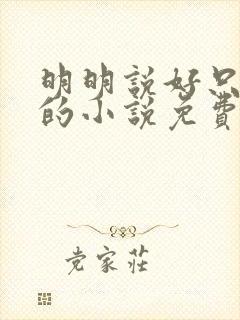 明明說好只
的小說免費
党家莊